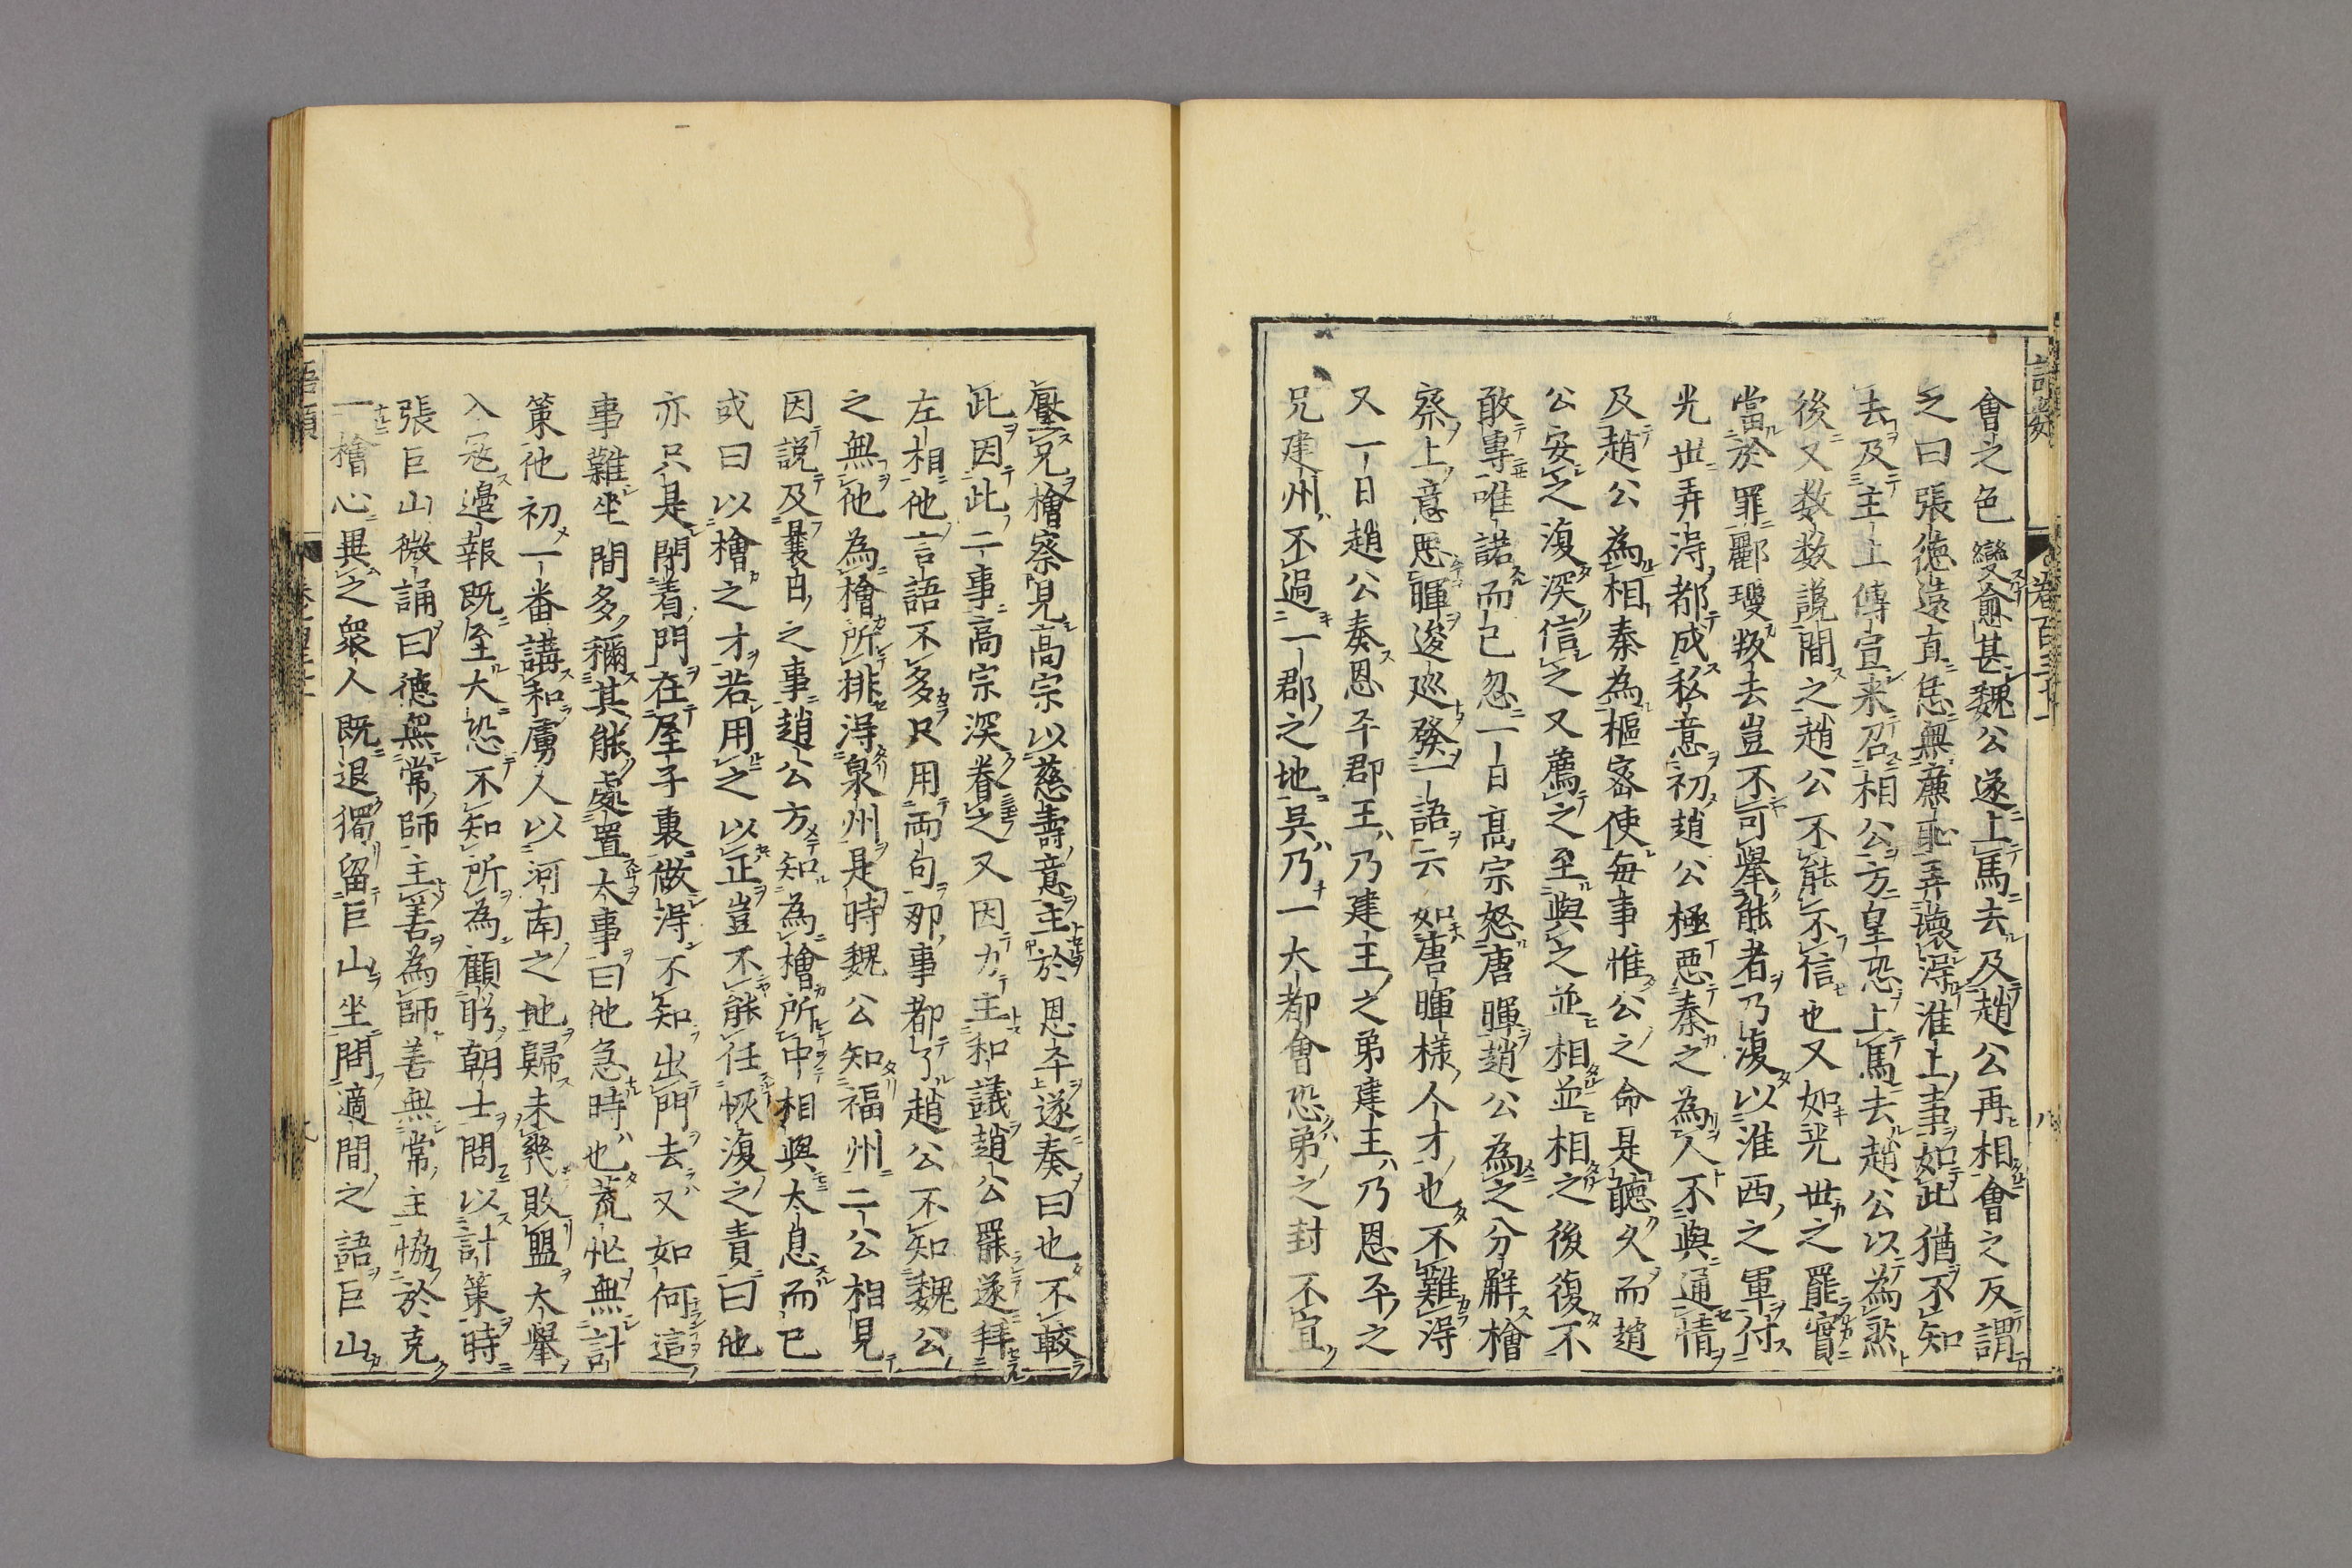 會之色變愈甚魏公遂上馬去及趙公再相會之反謂
之曰張德遠直恁無廉恥弄壞淂淮上事如此猶不知
去及主上傳宣来召相公方皇恐上馬去趙公以為然
後又数数說間之趙公不能不信也又如光世之罷實
當於罪酈瓊叛去豈不可舉能者乃復以淮西之軍付
光世弄淂都成私意初趙公極惡秦之為人不與通情
及趙公為相秦為樞密使每事惟公之命是聽久而趙
公安之復深信之又薦之至與之並相並相之後復不
敢專唯諾而已忽一日高宗怒唐暉趙公為之分解檜
察上意惡暉逡巡發一語云如唐暉様人才也不難淂
又一日趙公奏恩平郡王乃建王之弟建王乃恩平之
兄建州不過一郡之地吳乃一大都會恐弟之封不宜
壓兄檜察見高宗以慈壽意主於恩平遂奏曰也不較
此因此二事高宗深眷之又因力主和議趙公罷遂拜
左相他言語不多只用兩句那事都了趙公不知魏公
之無他為檜所排淂泉州是時魏公知福州二公相見
因說及曩由之事趙公方知為檜所中相與太息而已
或曰以檜之才若用之以正豈不能任恢復之責曰他
亦只是閉着門在屋子裏做淂不知出門去又如何這
事難坐間多稱其能處置大事曰他急時也荒忙無計
策他初一番講和虜人以河南之地歸未幾敗盟大舉
入宼邉報既至大恐不知所為顧盻朝士問以計策時
張巨山微誦曰德無常師主善為師善無常主恊於克
一檜心異之衆人既退獨留巨山坐問適間之語巨山
語類
卷百三十一
八